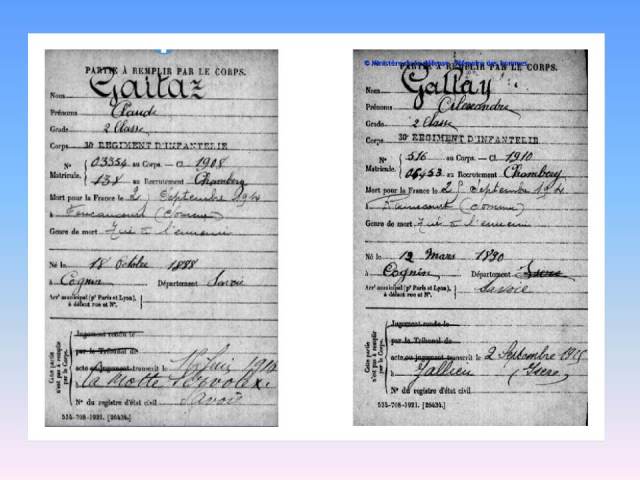 PARTIE À REMPLIR PAR LE CORPS.
Nom Gaitaz
Prénoms Claude
Grade 2 Classe
Corps 30 REGIMENT D'INFANTERIE
N° 03354 au Corps. — Cl 1908
Matricule. 138 au Recrutement Chambery
Mort pour la France le 2 Septembre 1914
à Foucaucourt (Somme)
Genre de mort Tué à l'ennemi
Né le 18 Octobre 1888
à Cognin Département Savoie
Arr^t municipal (p^r Paris et Lyon), à défaut rue et N°.
Cette partie n'est pas à remplir par le Corps.
Jugement rendu le
par le Tribunal de
acte ou jugement transcrit le 16 Juin 1916
à la Motte Servolex
Savoie
N° du registre d'état civil
534-708-1921. [26434.]
© Ministère de la défense - Mémoire des hommes
PARTIE À REMPLIR PAR LE CORPS.
Nom Gallay
Prénoms Alexandre
Grade 2 Classe
Corps 30 REGIMENT D'INFANTERIE
N° 516 au Corps. — Cl 1910
Matricule. 06453 au Recrutement Chambery
Mort pour la France le 25 Septembre 1914
à (Somme)
Genre de mort Tué à l'ennemi
Né le 12 Mars 1890
à Cognin Département Isère
Savoie
Arr^t municipal (p^r Paris et Lyon), à défaut rue et N°.
Cette partie n'est pas à remplir par le Corps.
Jugement rendu le
par le Tribunal de
acte ou jugement transcrit le 2 Septembre 1915
à Jallieu (Isere)
N° du registre d'état civil
534-708-1921. [26434.]